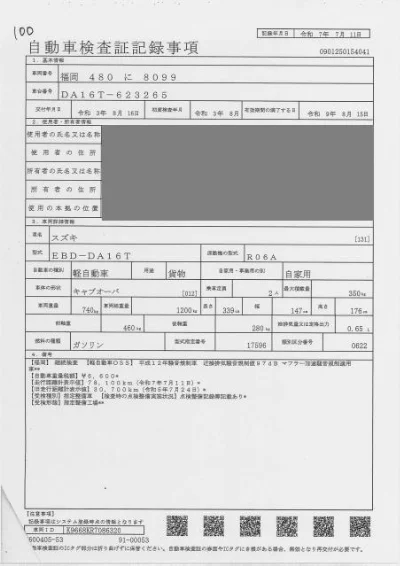 100
記録年月日 令和 7年 7月 11日
自動車検査証記録事項
0901250154041
1. 基本情報
車両番号 福岡 480 に 8099
車台番号 DA16T-623265
交付年月日 令和 3年 8月 16日 初度検査年月 令和 3年 8月 有効期間の満了する日 令和 9年 8月 15日
2. 使用者・所有者情報
使用者の氏名又は名称
使用者の住所
所有者の氏名又は名称
所有者の住所
使用の本拠の位置
3. 車両詳細情報
車名 スズキ [131]
型式 EBD-DA16T 原動機の型式 R06A
自動車の種別 軽自動車 用途 貨物 自家用・事業用の別 自家用
車体の形状 キャブオーバ [012] 乗車定員 2人 最大積載量 350kg
車両重量 740kg 車両総重量 1200kg 長さ 339cm 幅 147cm 高さ 176cm
前軸重 460kg 後軸重 280kg 総排気量又は定格出力 0.65 L
燃料の種類 ガソリン 型式指定番号 17596 類別区分番号 0622
4. 備考
[福岡] 継続検査 [軽自動車OSS] 平成12年騒音規制車 近接排気騒音規制値97dB マフラー加速騒音規制適用
車**
[自動車重量税額] ¥6,600*
[走行距離計表示値] 78,100km (令和7年7月11日)*
[旧走行距離計表示値] 30,700km (令和5年7月24日)*
[受検種別] 指定整備車 [検査時の点検整備実施状況] 点検整備記録簿記載あり*
[受検形態] 指定整備工場**
[注意事項]
記録事項はシステム登録時点の情報となります
車両ID K9668ER7086320
900405-53 91-00053
当車検査証のICタグ部分は折り曲げずに保管ください。自動車検査証の券面やICタグにき損がある場合、無効となり再交付が必要です。